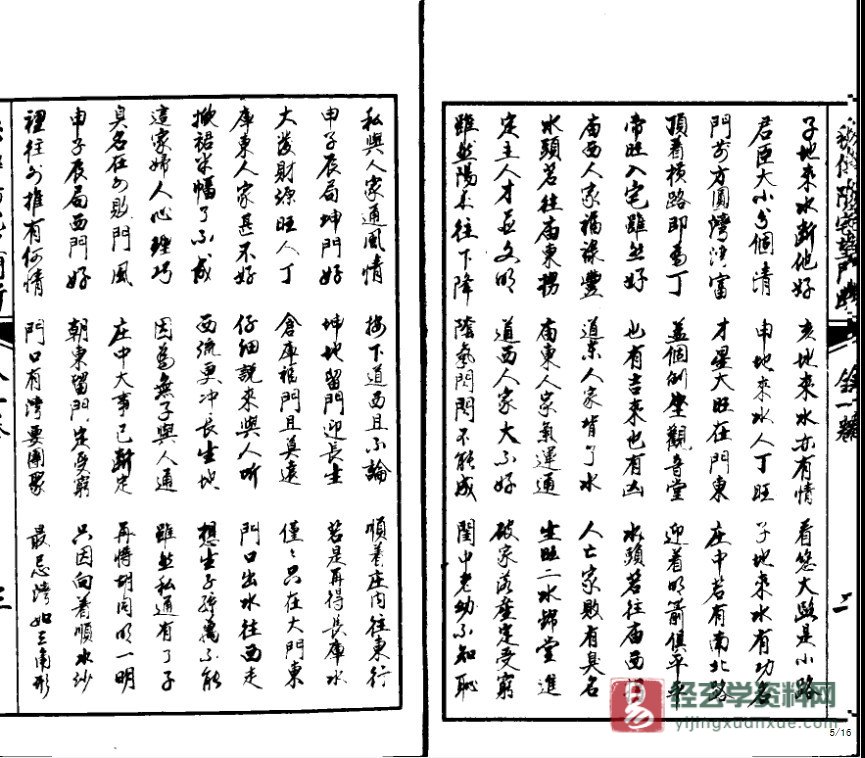 子地来水断他好 亥地来水亦有情 看您大路是小路
君臣大小分個清 申地来水人丁旺 子地来水有功名
門前方圓灣濘富 才星大旺在門東 庄中若有南北路
頂着横路即爲丁 盖個倒坐觀音堂 迎着明箭俱平平
帝旺入宅雖然好 也有吉来也有凶 水頭若往庙西
庙西人家福禄豐 道东人家背了水 人亡家敗有臭名
水頭若往庙東拐 庙東人家氣運通 生旺二水錦堂進
定主人才並文明 道西人家大不好 破家落産定受窮
雖然陽水往下降 陰氣閃閃不能成 閨中老幼不知恥
私與人家通風情 按下道西且不論 順着庄内往東行
申子辰局坤門好 坤地留門迎長生 若是再得長庫水
大發財源旺人丁 倉庫福門且莫遠 僅僅只在大門東
庫東人家甚不好 仔細說来與人听 門口出水往西走
掀裙半幅了不成 西流更冲長生地 想生子孫萬不能
這家婦人心裡巧 因爲無子與人通 雖然私通有了子
臭名在外敗門風 庄中大事已断定 再將胡同明一明
申子辰局西門好 朝東留門定受窮 只因向着順水
裡往外推有何情 門口有灣要團聚 最忌灣如三角形
二
三
易
经玄学资料网
yijingxuanxue.com
5/16